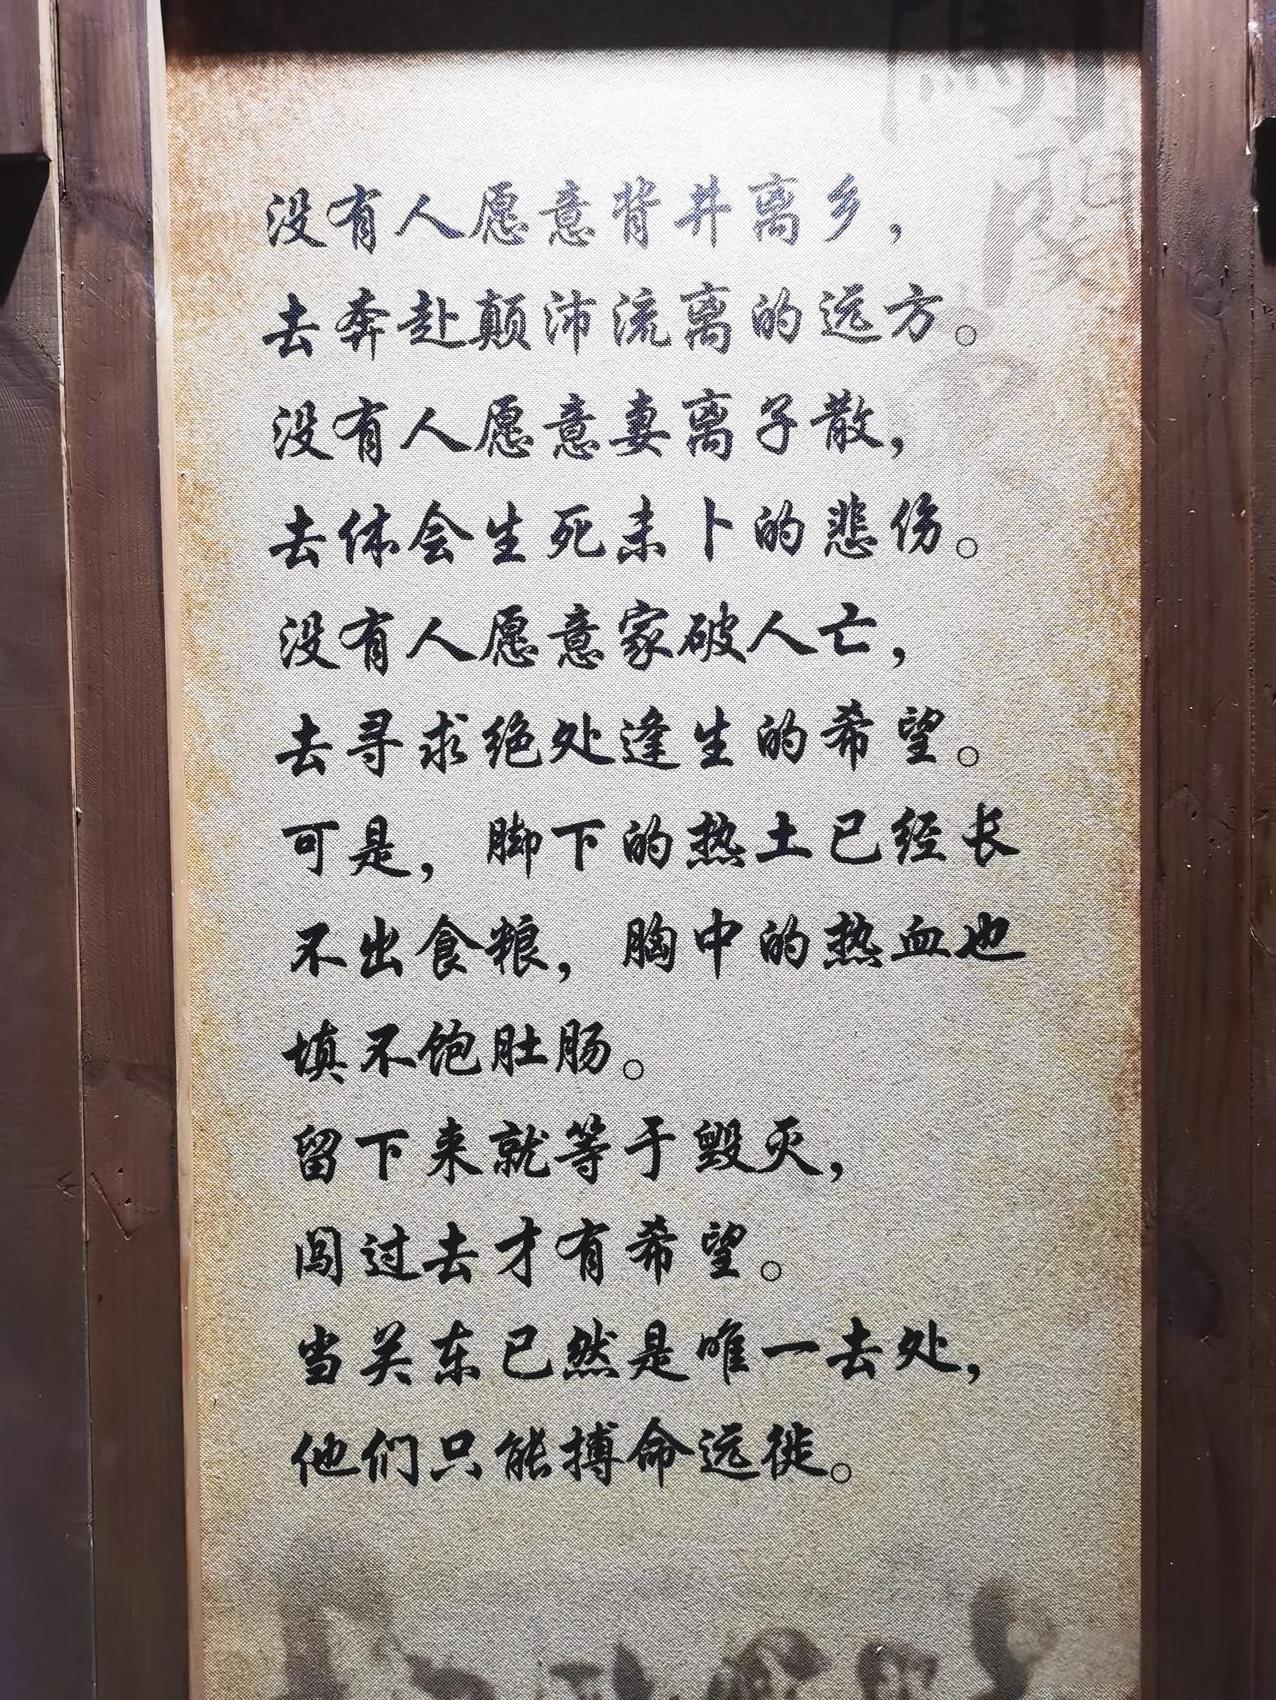 没有人愿意背井离乡，
去奔赴颠沛流离的远方。
没有人愿意妻离子散，
去体会生死未卜的悲伤。
没有人愿意家破人亡，
去寻求绝处逢生的希望。
可是，脚下的热土已经长
不出食粮，胸中的热血也
填不饱肚肠。
留下来就等于毁灭，
闯过去才有希望。
当关东已然是唯一去处，
他们只能搏命远徙。